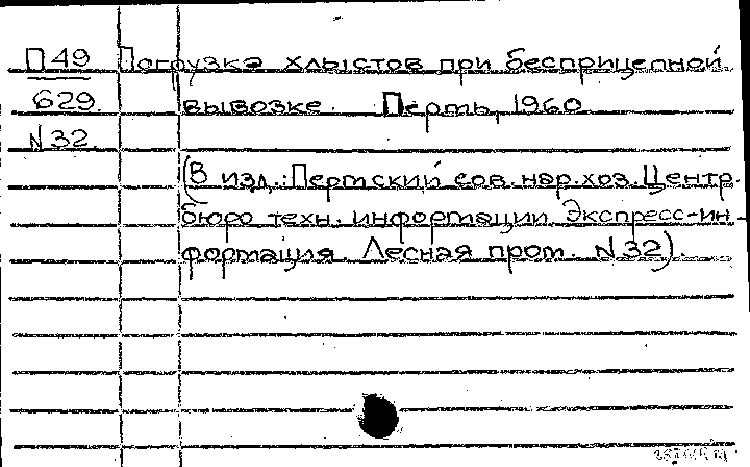 П49 Погрузка хлыстов при бесприцепной
629. вывозке. Пермь, 1960.
N32.
(В изд.: Пермский сов. нар. хоз. Центр.
бюро техн. информации. Экспресс-ин-
формация. Лесная пром. N32).